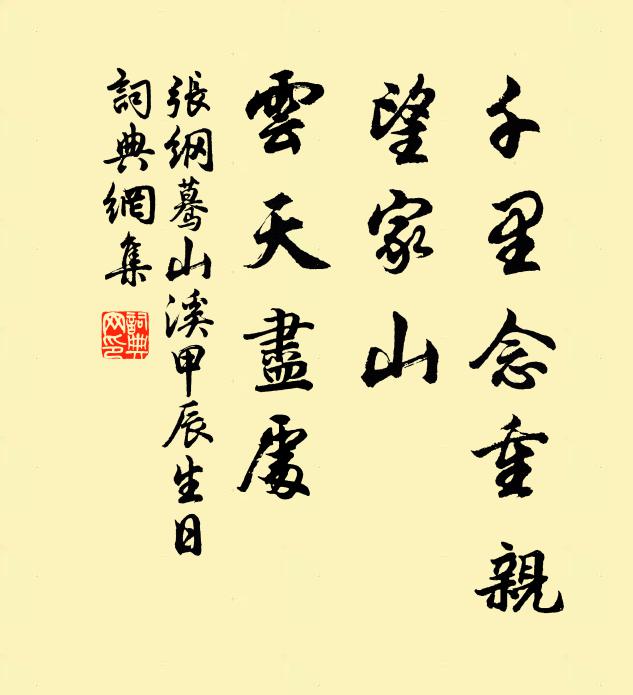 千里念重親
望家山
雲天盡處
張綱驀山溪甲辰生日
詞典網集
詞典網印